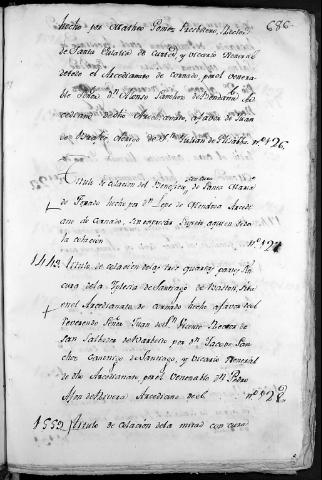 686
hecho por Matheo Gomez Pacheiro, Rector
de Santa Eulalia de Curtis, y vicario General
de todo el Arcedianato de Cornado, por el venera-
ble Señor Dn Alonso Sanchez de
cediano de dho Arcedianato, a favor de Juan
Clerigo de Sn Julian de no 126.
Titulo de colacion del Beneficio de Santa Maria
de hecho por Dn Lope de Mendoza Arcedi
ano de Cornado, sin expresar sugeto aquien se dio
la colacion no 127
1443 Titulo de colacion delas tres quartas partes sin
cura dela Yglesia de Santiago de Boston, sita
en el Arcedianato de cornado hecho a favor del
Reverendo Señor Juan de Sn Vicente Rector de
San Salvador de por Dn Jacome San-
chez Canonigo de Santiago, y vicario General
de dho Arcedianato, por el venerable Dn Pedro
Alfon de Rivera Arcediano de el no 128
1552 Titulo de colacion dela mitad con cura